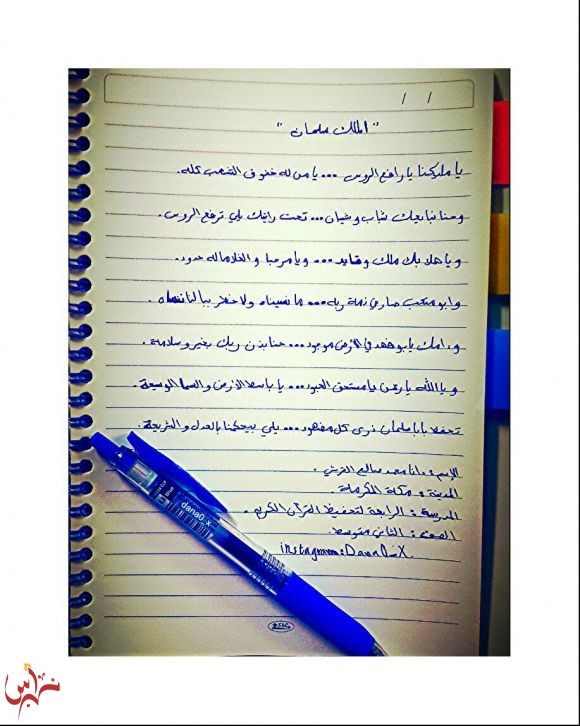 "الملك سلمان"
يا مليكنا يا رافع الروس ... يا من له حقوق الشعب كله.
وحنا نبايعك شباب وشيبان ... تحت رايتك يلي ترفع الروس.
ويا هلا بك ملك وقايد ... ويا مرحبا والغلا ماله حدود.
وابو متعب صار في ذمة ربه ... ما نسيناه ولا خطر ببالنا ننساه.
ودامك يابو فهد في الأرض موجود ... حنا بذن ربك بخير وسلامة.
ويا الله يا رحمن يا مستحق العبود ... يا باسط الأرض والسما الوسيعة.
تحفظ بابا سلمان نرى كل مقصود ... يلي بيحكمنا بالعدل والشريعة.
الإسم: دانا محمد صالح القرني.
المدينة: مكة المكرمة.
المدرسة: الرابعة لتحفيظ القرآن الكريم.
الصف: الثاني متوسط.
instagram: DanaQ_X.
danaQ_x
نبراس